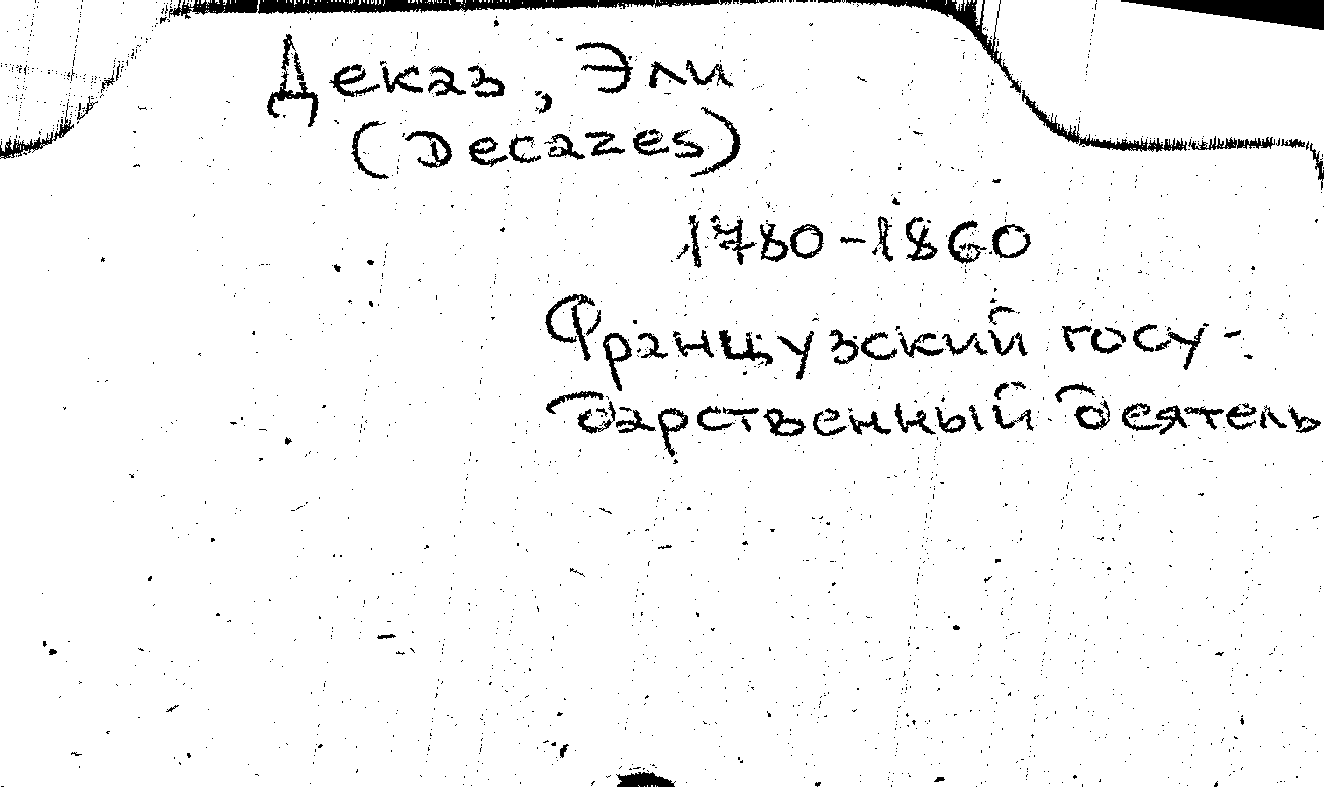 Деказ, Эли
(Decazes)
1780-1860
Французский госу-
дарственный деятель